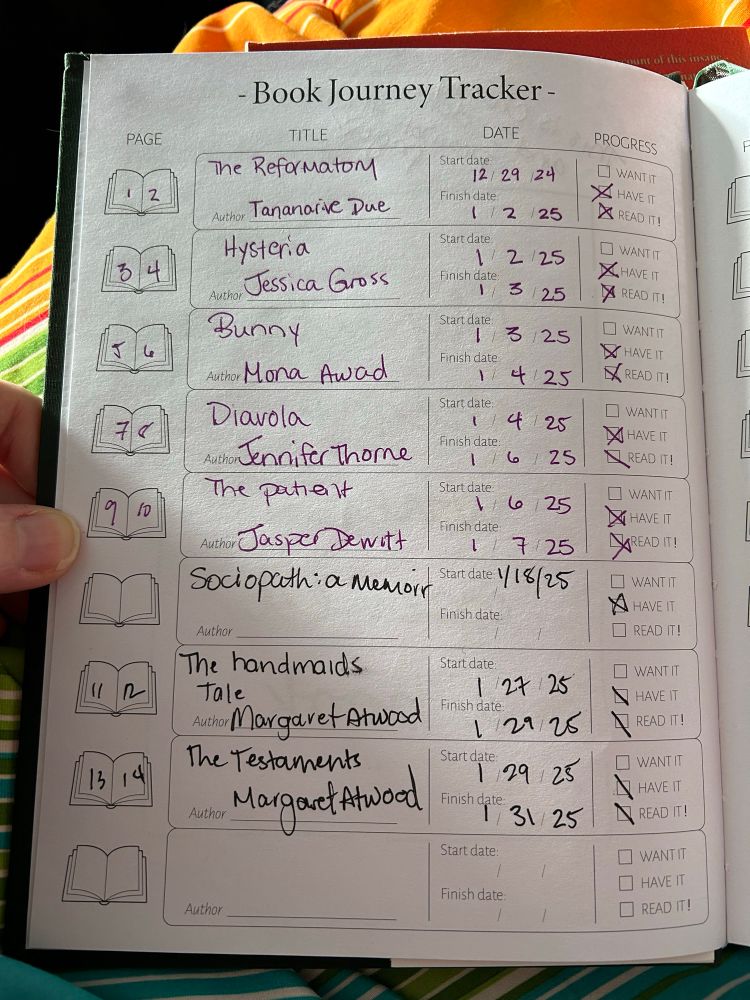 count of this insane
- Book Journey Tracker -
PAGE TITLE DATE PROGRESS
1 2
The Reformatory
Author Tananarive Due
Start date: 12 / 29 / 24
Finish date: 1 / 2 / 25
WANT IT
HAVE IT
READ IT!
3 4
Hysteria
Author Jessica Gross
Start date: 1 / 2 / 25
Finish date: 1 / 3 / 25
WANT IT
HAVE IT
READ IT!
5 6
Bunny
Author Mona Awad
Start date: 1 / 3 / 25
Finish date: 1 / 4 / 25
WANT IT
HAVE IT
READ IT!
7 8
Diavola
Author Jennifer Thorne
Start date: 1 / 4 / 25
Finish date: 1 / 6 / 25
WANT IT
HAVE IT
READ IT!
9 10
The patient
Author Jasper Dewitt
Start date: 1 / 6 / 25
Finish date: 1 / 7 / 25
WANT IT
HAVE IT
READ IT!
Sociopath: a memoir
Author
Start date: 1/18/25
Finish date: / /
WANT IT
HAVE IT
READ IT!
11 12
The handmaids
Tale
Author Margaret Atwood
Start date: 1 / 27 / 25
Finish date: 1 / 29 / 25
WANT IT
HAVE IT
READ IT!
13 14
The Testaments
Author Margaret Atwood
Start date: 1 / 29 / 25
Finish date: 1 / 31 / 25
WANT IT
HAVE IT
READ IT!
Author
Start date: / /
Finish date: / /
WANT IT
HAVE IT
READ IT!